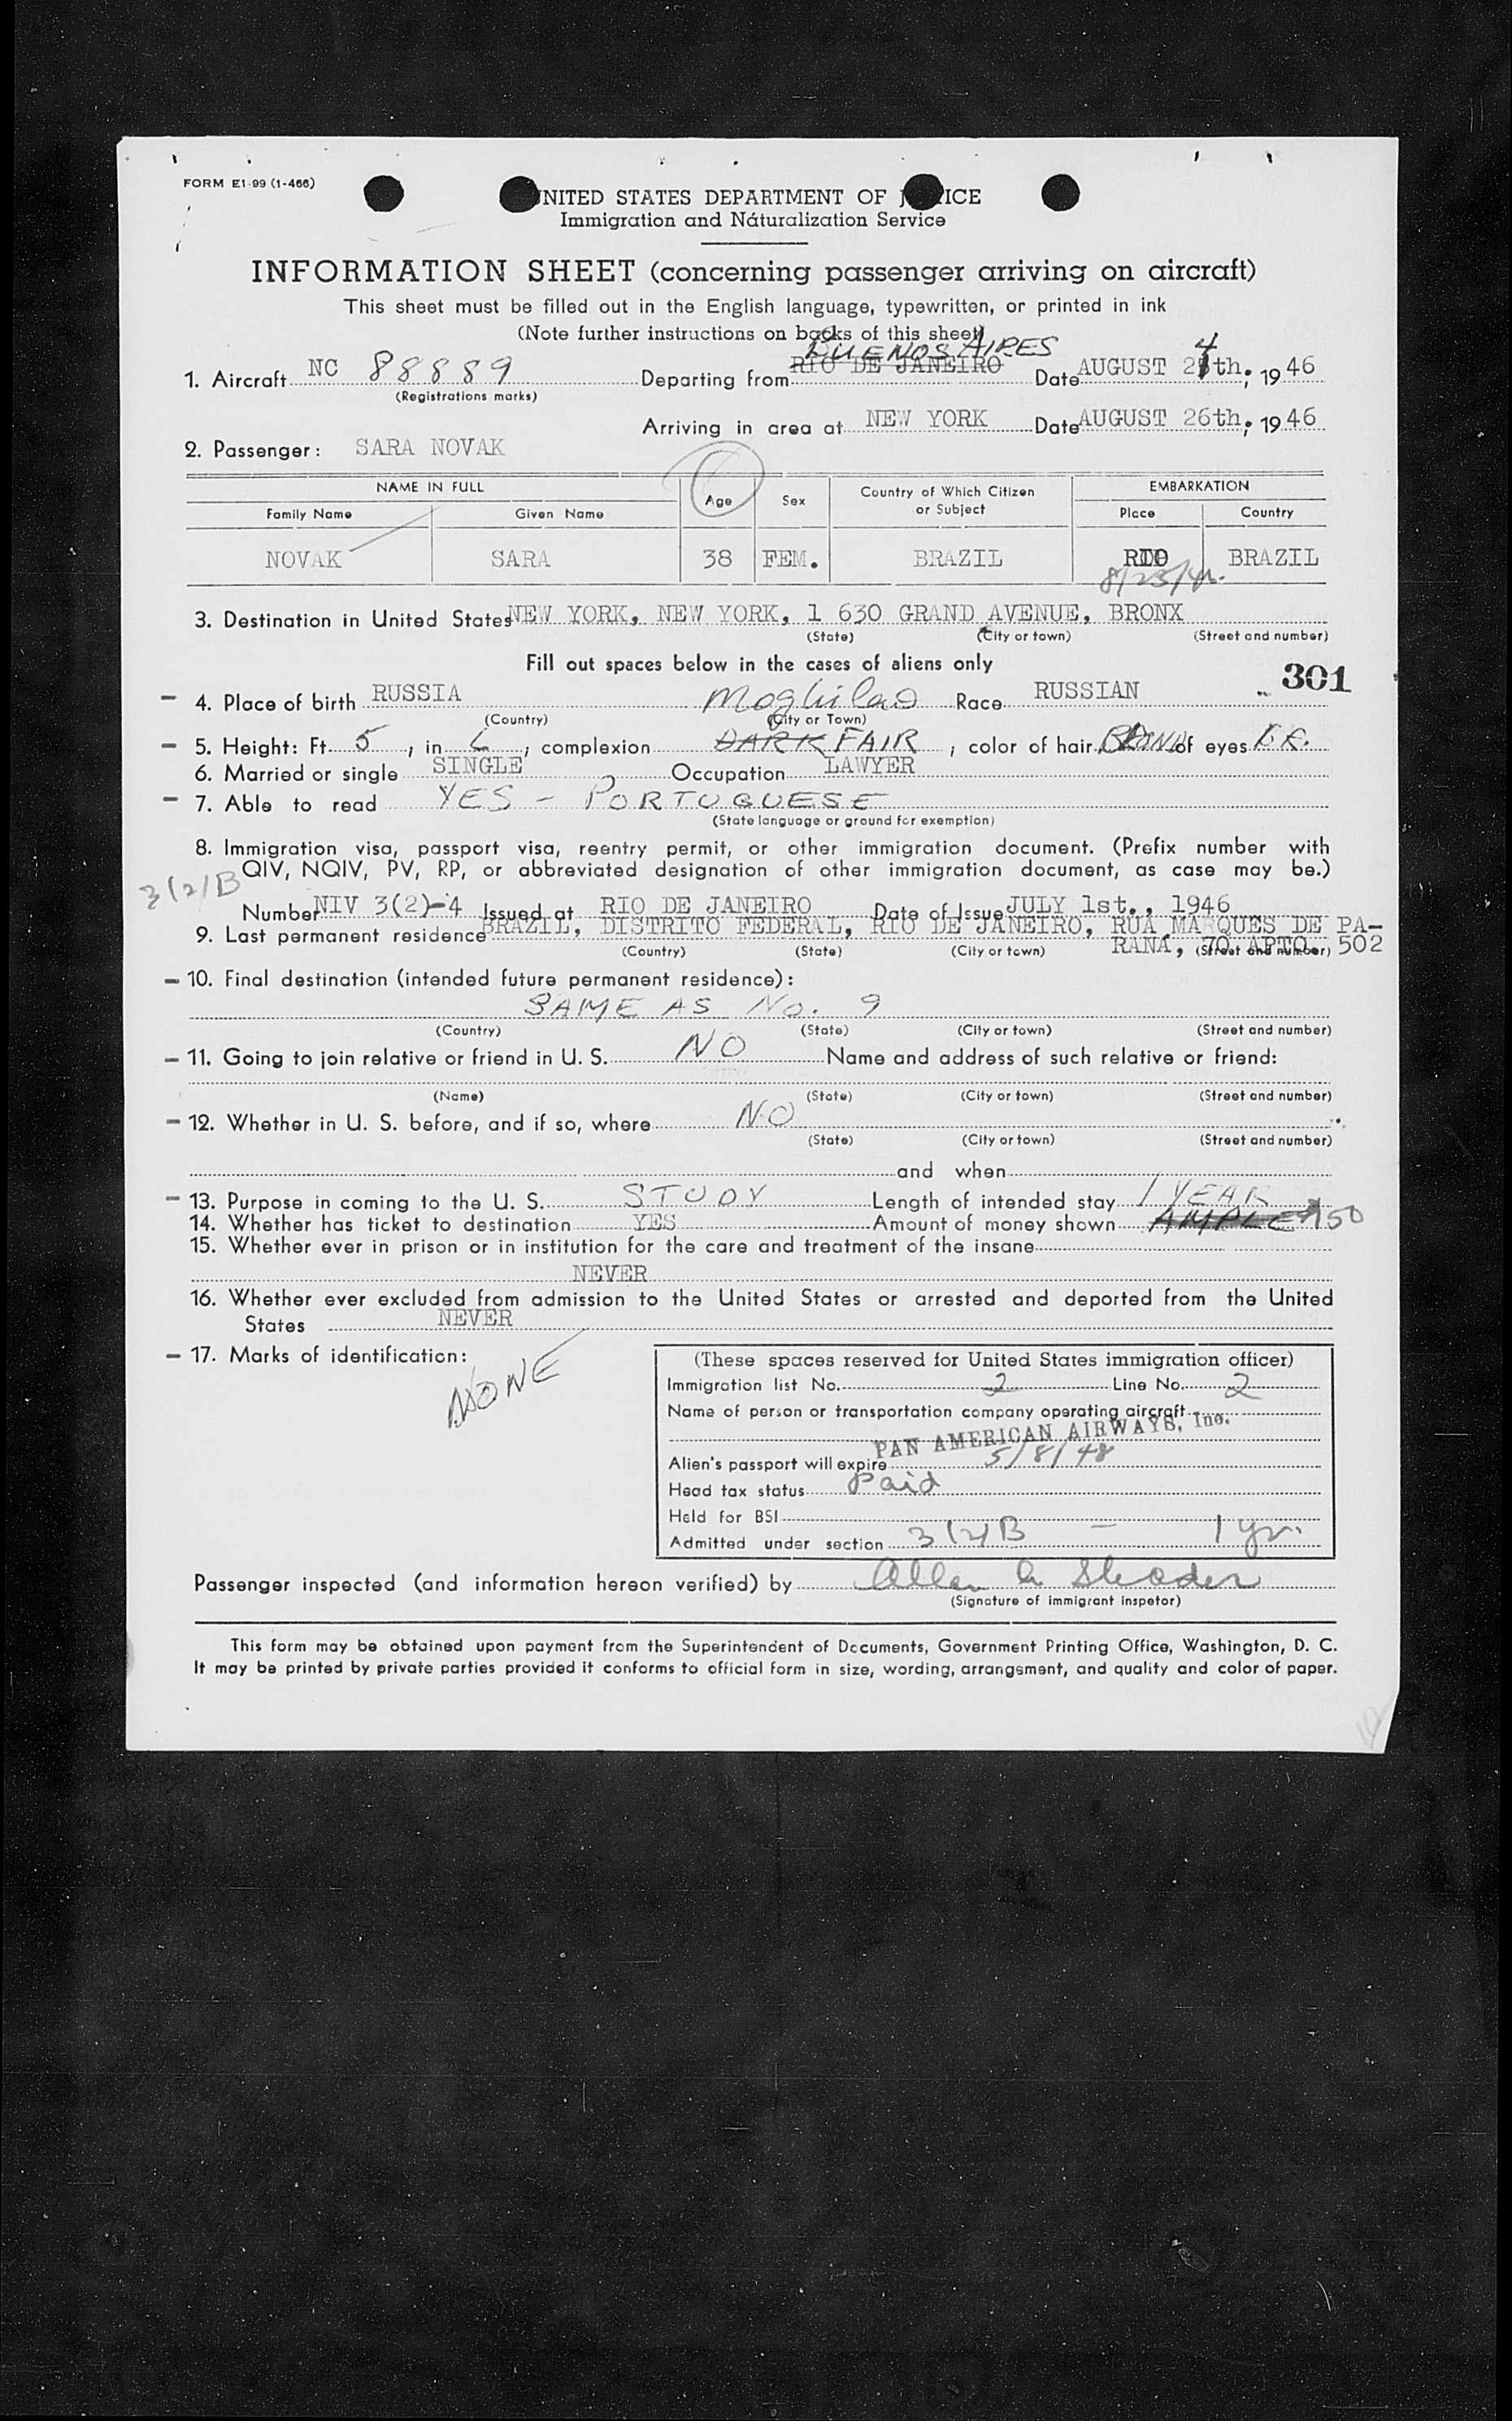 FORM E1-99 (1-466)
UNITED STATES DEPARTMENT OF JUSTICE
Immigration and Naturalization Service
INFORMATION SHEET (concerning passenger arriving on aircraft)
This sheet must be filled out in the English language, typewritten, or printed in ink
(Note further instructions on backs of this sheet)
BUENOS AIRES
1. Aircraft NC 88889 Departing from RIO DE JANEIRO Date AUGUST 24th, 1946
(Registrations marks)
Arriving in area at NEW YORK Date AUGUST 26th, 1946
2. Passenger: SARA NOVAK
NAME IN FULL Age Sex Country of Which Citizen or Subject EMBARKATION
Family Name Given Name Place Country
NOVAK SARA 38 FEM. BRAZIL RIO BRAZIL
3. Destination in United States NEW YORK, NEW YORK, 1 630 GRAND AVENUE, BRONX
(State) (City or town) (Street and number)
Fill out spaces below in the cases of aliens only
301
4. Place of birth RUSSIA Race RUSSIAN
(Country) (City or Town)
5. Height: Ft. 5, in 6; complexion DARK FAIR; color of hair of eyes BR.
6. Married or single SINGLE Occupation LAWYER
7. Able to read YES - PORTUGUESE
(State language or ground for exemption)
8. Immigration visa, passport visa, reentry permit, or other immigration document. (Prefix number with
QIV, NQIV, PV, RP, or abbreviated designation of other immigration document, as case may be.)
3(2)B
Number NIV 3(2)-4 Issued at RIO DE JANEIRO Date of Issue JULY 1st., 1946
9. Last permanent residence BRAZIL, DISTRITO FEDERAL, RIO DE JANEIRO, RUA MARQUES DE PA-
(Country) (State) (City or town) RANA, 70 APTO. 502 (Street and number)
10. Final destination (intended future permanent residence):
SAME AS No. 9
(Country) (State) (City or town) (Street and number)
11. Going to join relative or friend in U. S. NO Name and address of such relative or friend:
(Name) (State) (City or town) (Street and number)
12. Whether in U. S. before, and if so, where NO
(State) (City or town) (Street and number)
and when
13. Purpose in coming to the U. S. STUDY Length of intended stay 1 YEAR
14. Whether has ticket to destination YES Amount of money shown AMPLE 150
15. Whether ever in prison or in institution for the care and treatment of the insane
NEVER
16. Whether ever excluded from admission to the United States or arrested and deported from the United
States NEVER
17. Marks of identification:
NONE
(These spaces reserved for United States immigration officer)
Immigration list No. 2 Line No. 2
Name of person or transportation company operating aircraft
PAN AMERICAN AIRWAYS, Inc.
Alien's passport will expire 5/8/48
Head tax status Paid
Held for BSI
Admitted under section 3(2)B - 1 yr.
Passenger inspected (and information hereon verified) by
(Signature of immigrant inspetor)
This form may be obtained upon payment from the Superintendent of Documents, Government Printing Office, Washington, D. C.
It may be printed by private parties provided it conforms to official form in size, wording, arrangement, and quality and color of paper.